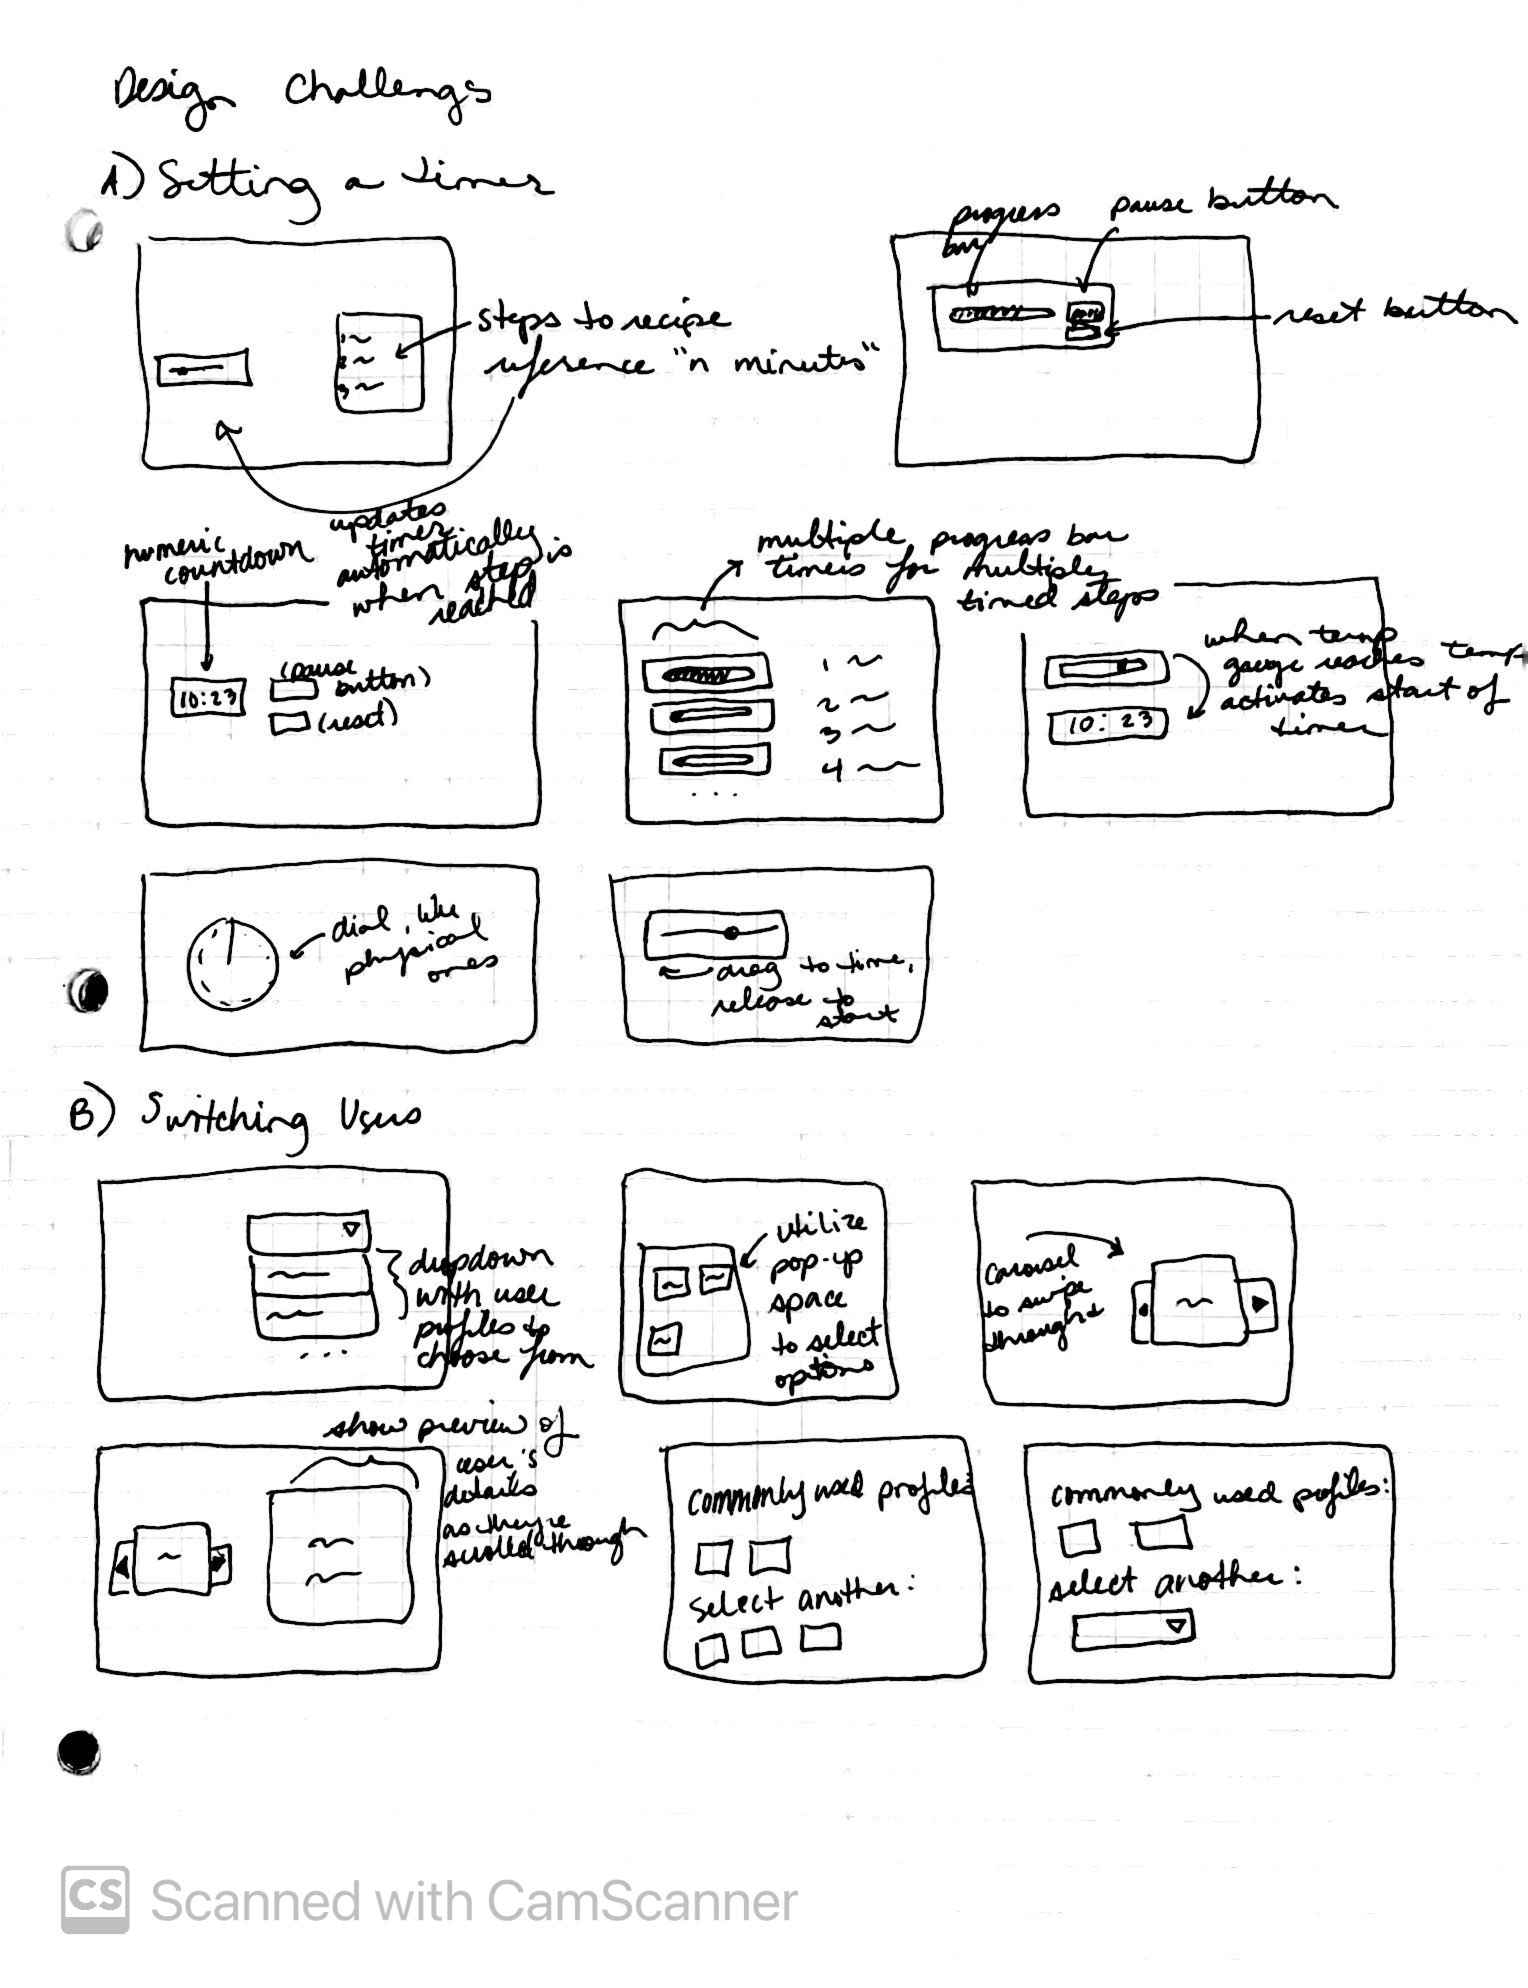 Design Challenges
A) Setting a timer
1 ~
2 ~
3 ~
steps to recipe
reference "n minutes"
updates
timer
automatically
when step is
reached
progress
bar
pause button
reset button
numeric
countdown
10:23
(pause
button)
(reset)
multiple progress bar
timers for multiple
timed steps
1 ~
2 ~
3 ~
4 ~
...
when temp
gauge reaches temp
activates start of
timer
10:23
dial, like
physical
ones
drag to time,
release to
start
B) Switching Users
dropdown
with user
profiles to
choose from
...
utilize
pop-up
space
to select
options
carousel
to swipe
through
show preview of
user's
details
as they're
scrolled through
commonly used profiles:
select another:
commonly used profiles:
select another:
CS Scanned with CamScanner